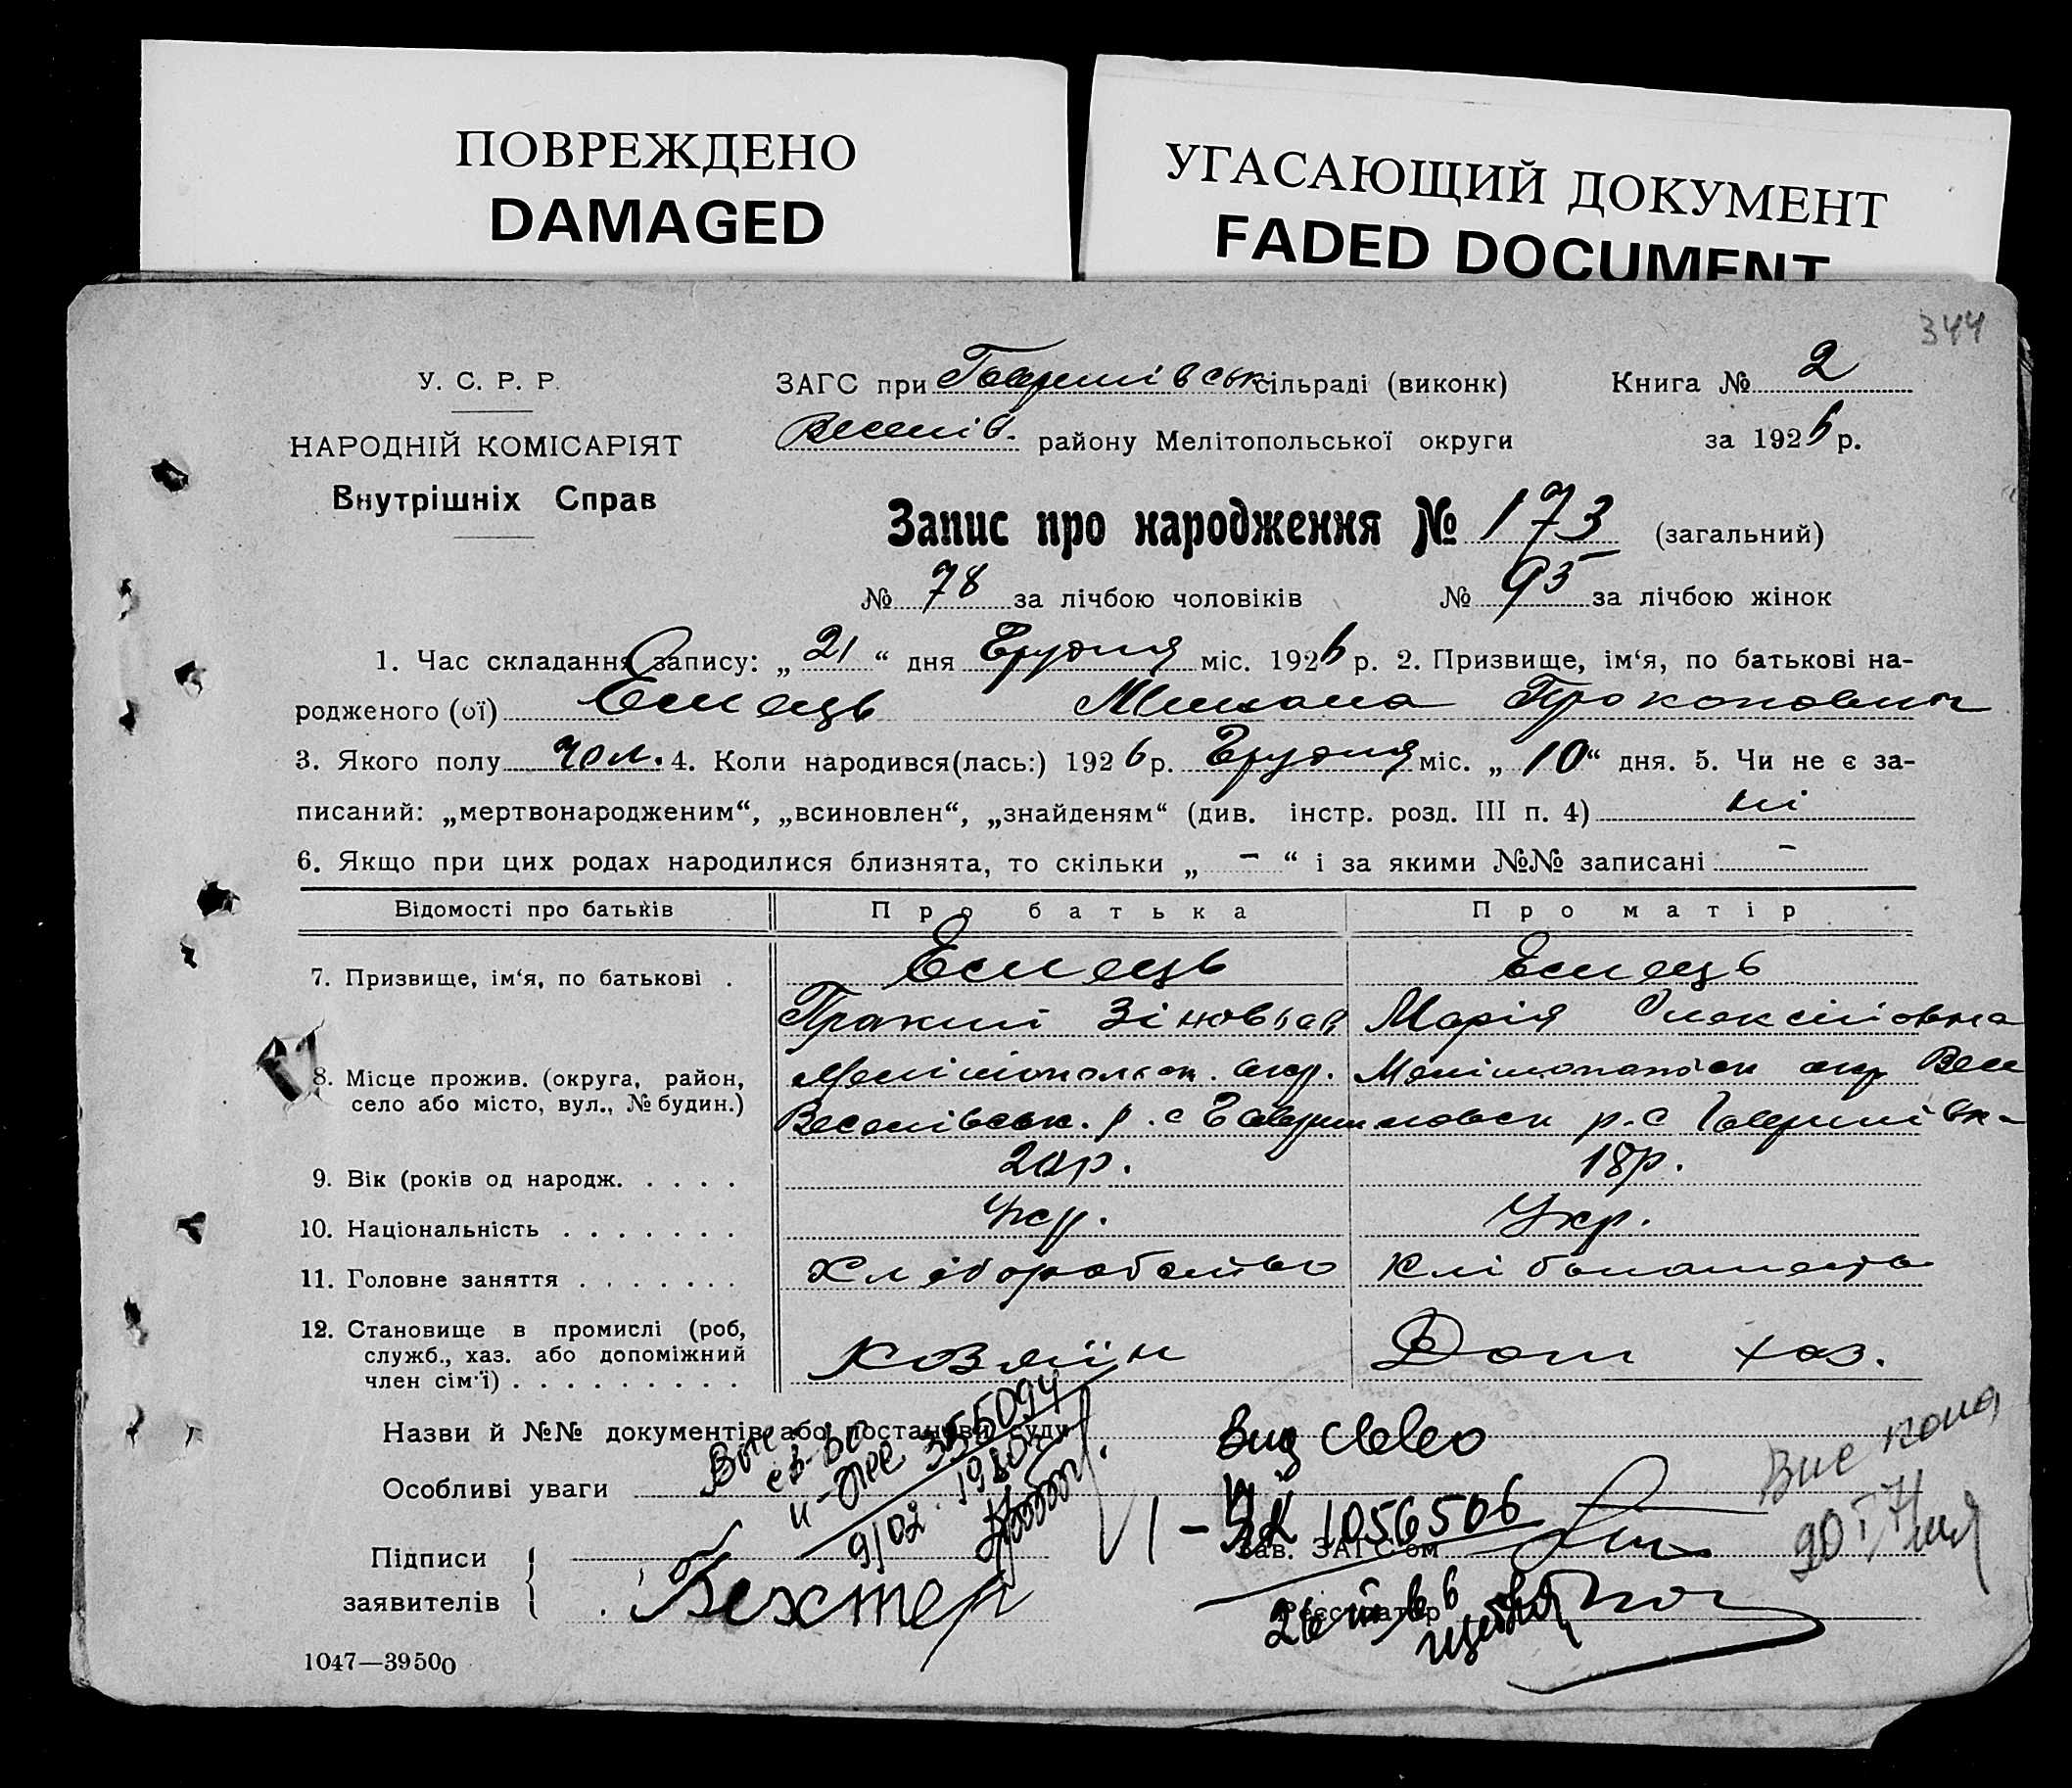 ПОВРЕЖДЕНО
DAMAGED
УГАСАЮЩИЙ ДОКУМЕНТ
FADED DOCUMENT
344
У. С. Р. Р.
НАРОДНІЙ КОМІСАРІЯТ
Внутрішніх Справ
ЗАГС при Гаврилівськ сільраді (виконк)
Книга № 2
Веселів. району Мелітопольської округи
за 1926 р.
Запис про народження № 173 (загальний)
№ 78 за лічбою чоловіків № 95 за лічбою жінок
1. Час складання запису: „ 21 “ дня Грудня міс. 1926 р. 2. Призвище, ім‘я, по батькові на-
родженого (ої) Ємець Михайла Прокопович
3. Якого полу чол. 4. Коли народився(лась:) 1926 р. Грудня міс. „ 10 “ дня. 5. Чи не є за-
писаний: „мертвонародженим“, „всиновлен“, „знайденям“ (див. інстр. розд. III п. 4) ні
6. Якщо при цих родах народилися близнята, то скільки „ – “ і за якими №№ записані –
Відомості про батьків Про батька Про матір
7. Призвище, ім‘я, по батькові . Ємець Ємець
Зіновьев Марія
8. Місце прожив. (округа, район, село або місто, вул., № будин.) Мелітопольск. окр. Мелітопольск окр Весе
Веселівськ. р. с Гаврил ловск р. с Гаврилівк-
9. Вік (років од народж. . . . . 20р. 18р.
10. Національність . . . . . . . Укр. Укр.
11. Головне заняття . . . . . . . Хліборобство
12. Становище в промислі (роб, служб., хаз. або допоміжний член сім‘ї) . . . . . . . . . Хозяїн Дом хаз.
Назви й №№ документів або постанови суду
Особливі уваги
355094
9/02. 1980
Выд св-во
1056506
Підписи
заявителів
Бехтер
Зав. ЗАГС‘ом
Реєстратор
1047—39500